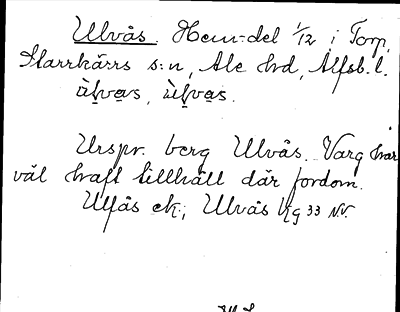 Ulvås. Hem-del 1/12 i Torp,
Starrkärrs s:n, Ale hd, Älfsb. l.
u̇lvas, u̇lvas.
Urspr. berg Ulvås. Varg har
väl haft tillhåll där fordom.
Ulfås ek;, Ulvås Kg 33 N.V.